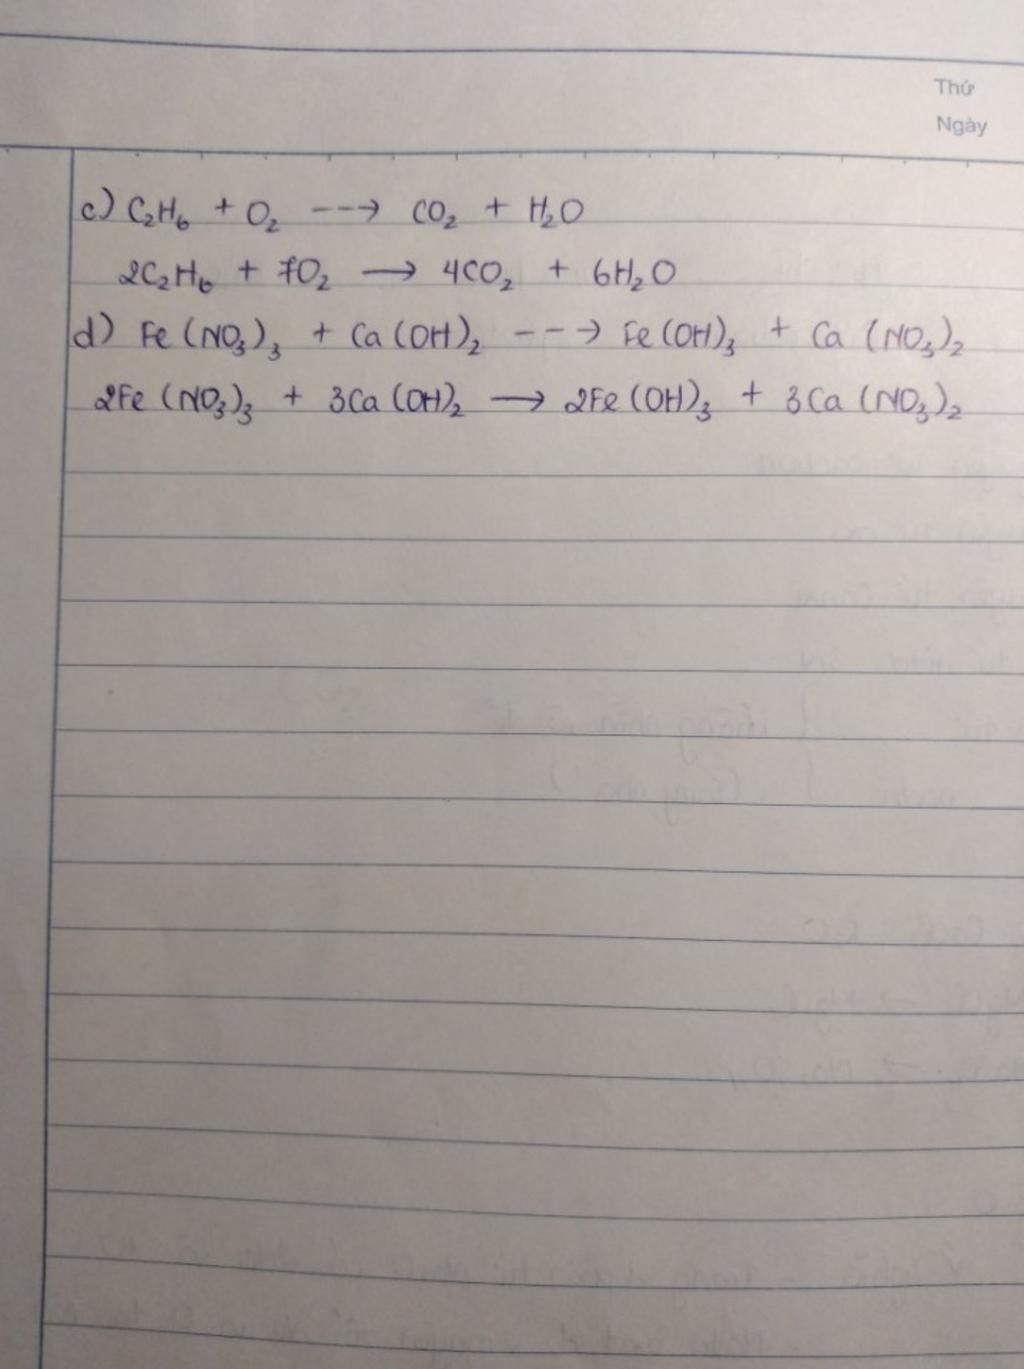 Thứ
Ngày
c) C₂H₆ + O₂ ---> CO₂ + H₂O
2C₂H₆ + 7O₂ → 4CO₂ + 6H₂O
d) Fe(NO₃)₃ + Ca(OH)₂ ---> Fe(OH)₃ + Ca(NO₃)₂
2Fe(NO₃)₃ + 3Ca(OH)₂ → 2Fe(OH)₃ + 3Ca(NO₃)₂